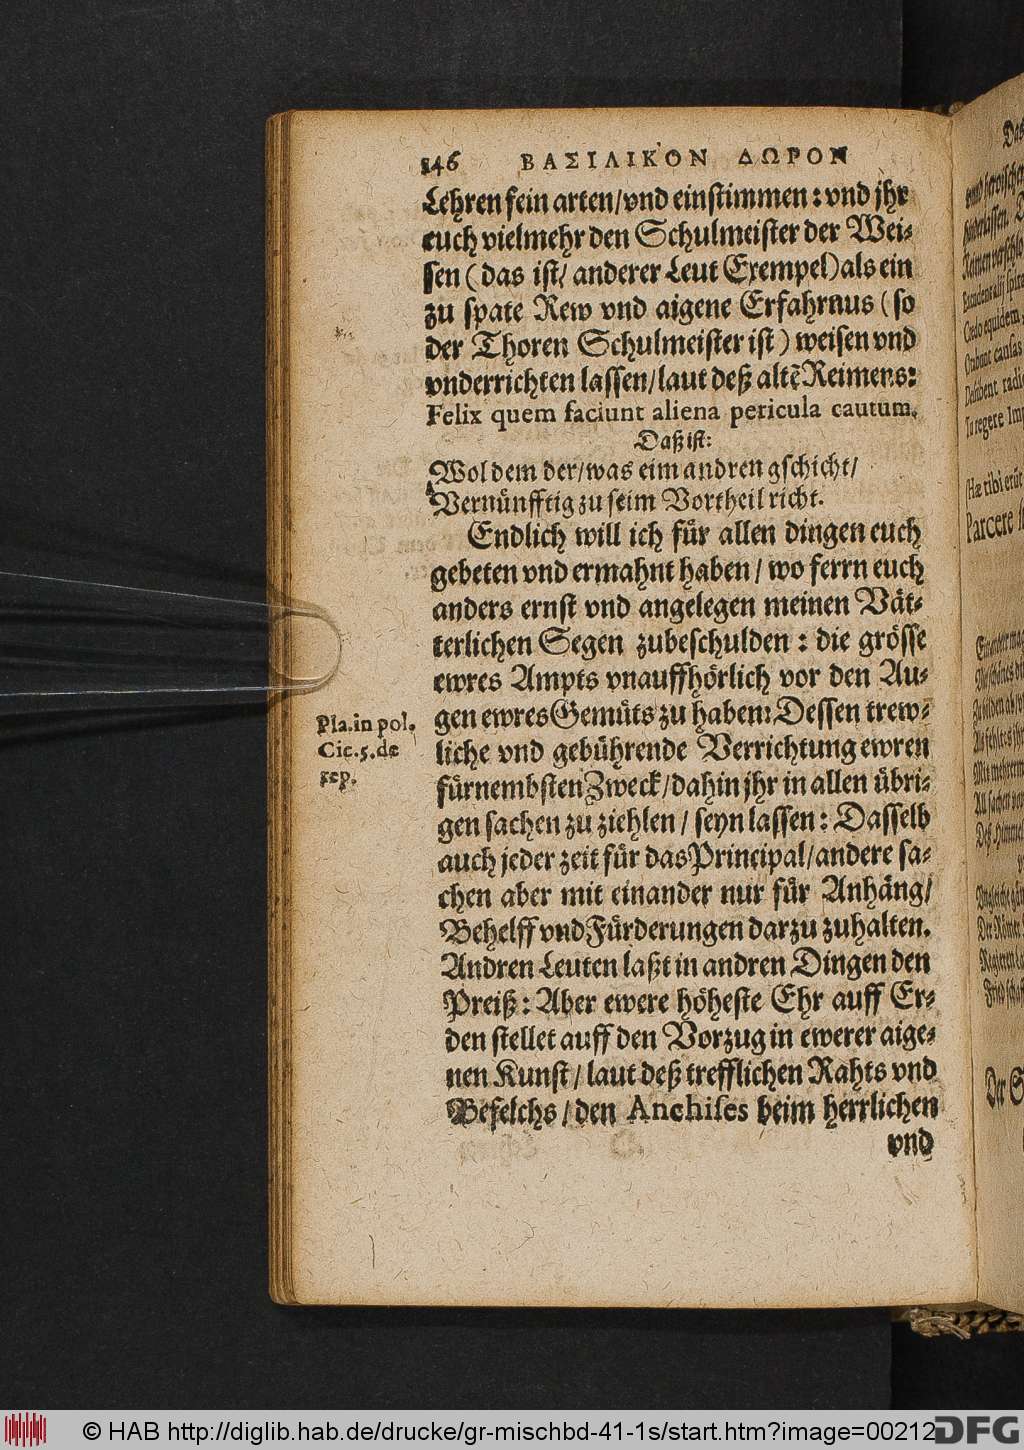 146 ΒΑΣΙΛΙΚΟΝ ΔΩΡΟΝ
Lehren fein arten/vnd einstimmen: vnd jhr
euch vielmehr den Schulmeister der Wei-
sen (das ist/ anderer Leut Exempel) als ein
zu spate Rew vnd aigene Erfahrnus (so
der Thoren Schulmeister ist) weisen vnd
vnderrichten lassen/laut deß altẽ Reimens:
Felix quem faciunt aliena pericula cautum.
Daß ist:
Wol dem der/was eim andren gschicht/
Vernünfftig zu seim Vortheil richt.
Endlich will ich für allen dingen euch
gebeten vnd ermahnt haben/ wo ferrn euch
anders ernst vnd angelegen meinen Vät-
terlichen Segen zubeschulden: die grösse
ewres Ampts vnauffhörlich vor den Au-
gen ewres Gemüts zu haben: Dessen trew-
Pla. in pol.
Cic. 5. de
rep.
liche vnd gebührende Verrichtung ewren
fürnembsten Zweck/dahin jhr in allen übri-
gen sachen zu ziehlen/ seyn lassen: Dasselb
auch jeder zeit für das Principal/andere sa-
chen aber mit einander nur für Anhäng/
Behelff vnd Fürderungen darzu zuhalten.
Andren Leuten laßt in andren Dingen den
Preiß: Aber ewere höheste Ehr auff Er-
den stellet auff den Vorzug in ewerer aige-
nen Kunst/ laut deß trefflichen Rahts vnd
Befelchs/ den Anchises beim herrlichen
vnd
Das
Parcere
Der
© HAB http://diglib.hab.de/drucke/gr-mischbd-41-1s/start.htm?image=00212
DFG